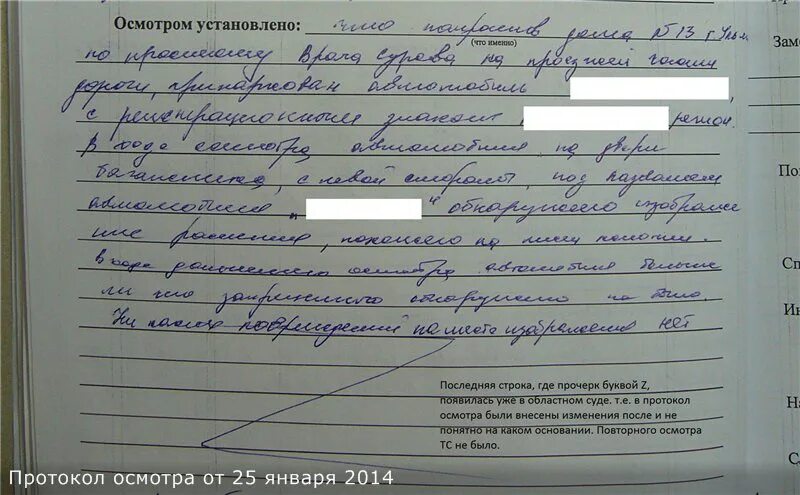 Осмотром установлено: что напротив дома №13 г. Ульян.
(что именно)
по проспекту Врача Сурова на проезжей части
дороги, припаркован автомобиль
с регистрационным знаком регион.
В ходе осмотра автомобиля на двери
багажника, с левой стороны, под названием
автомобиля „ “ обнаружено изображе
ние растения, похожего на лист конопли.
В ходе дальнейшего осмотра автомобиля больше
ничего запрещенного обнаружено не было.
Ни каких повреждений на месте изображения нет
Последняя строка, где прочерк буквой Z,
появилась уже в областном суде. т.е. в протокол
осмотра были внесены изменения после и не
понятно на каком основании. Повторного осмотра
ТС не было.
Протокол осмотра от 25 января 2014
Заме
По
Сп
Ин
На
С